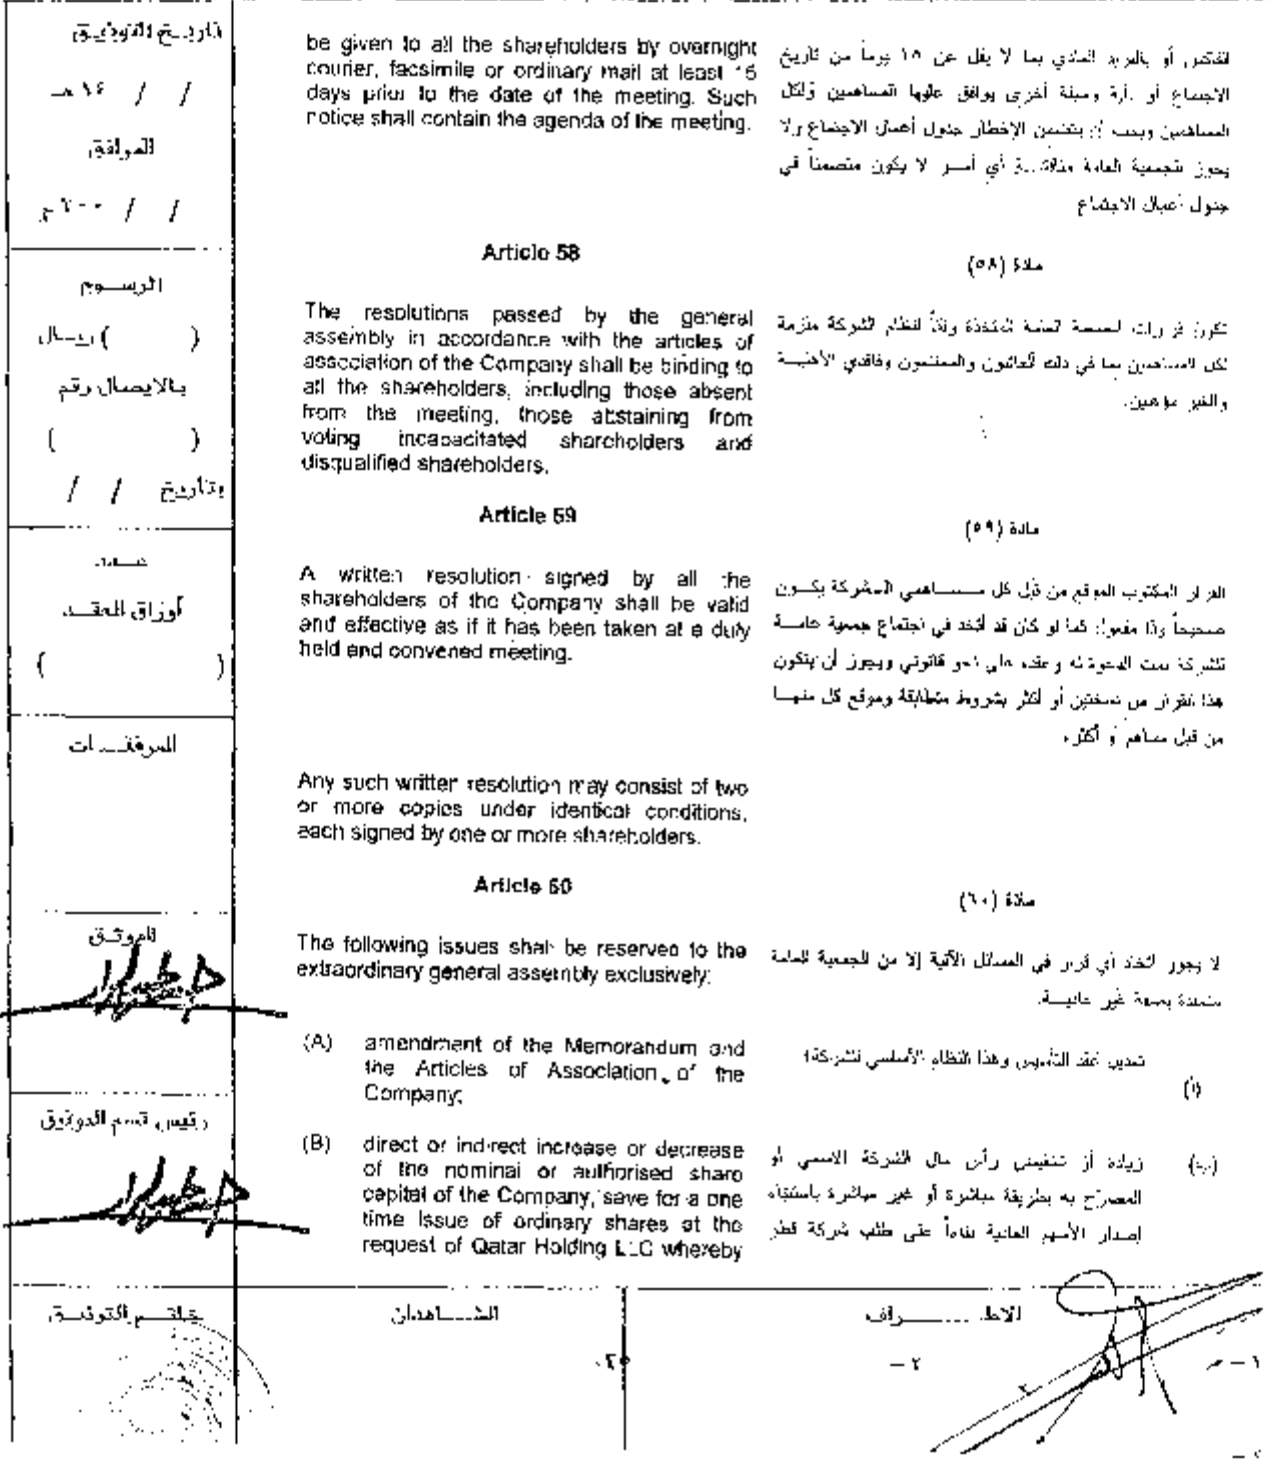 تاريخ التوثيق
/ / ١٤ هـ
الموافق
/ / ٢٠٠ م
الرســوم
( ) ريـال
بالايصال رقم
( )
بتاريخ / /
عــدد
أوراق العقــد
( )
المرفقــات
الموثـق
رئيس قسم التوثيق
خاتــم التوثيــق
be given to all the shareholders by overnight
courier, facsimile or ordinary mail at least 15
days prior to the date of the meeting. Such
notice shall contain the agenda of the meeting.
Article 58
The resolutions passed by the general
assembly in accordance with the articles of
association of the Company shall be binding to
all the shareholders, including those absent
from the meeting, those abstaining from
voting incapacitated shareholders and
disqualified shareholders.
Article 59
A written resolution signed by all the
shareholders of the Company shall be valid
and effective as if it has been taken at a duly
held and convened meeting.
Any such written resolution may consist of two
or more copies under identical conditions,
each signed by one or more shareholders.
Article 60
The following issues shall be reserved to the
extraordinary general assembly exclusively:
(A) amendment of the Memorandum and
the Articles of Association of the
Company;
(B) direct or indirect increase or decrease
of the nominal or authorised share
capital of the Company, save for a one
time issue of ordinary shares at the
request of Qatar Holding LLC whereby
الفاكس أو بالبريد العادي بما لا يقل عن ١٥ يوماً من تاريخ
الاجتماع أو بأية وسيلة أخرى يوافق عليها المساهمين ولكل
المساهمين ويجب أن يتضمن الإخطار جدول أعمال الاجتماع ولا
يجوز للجمعية العامة مناقشـة أي أمـر لا يكون متضمناً في
جدول أعمال الاجتماع
مادة (٥٨)
تكون قرارات الجمعية العامة المتخذة وفقاً لنظام الشركة ملزمة
لكل المساهمين بما في ذلك الغائبون والممتنعون وفاقدي الأهليـة
والغير مؤهلين.
مادة (٥٩)
القرار المكتوب الموقع من قبل كل مســاهمي الشركة يكــون
صحيحاً وذا مفعول كما لو كان قد أتخذ في اجتماع جمعية عامــة
للشركة تمت الدعوة له وعقده على نحو قانوني ويجوز أن يتكون
هذا القرار من نسختين أو أكثر بشروط متطابقة وموقع كل منهــا
من قبل مساهم أو أكثر.
مادة (٦٠)
لا يجوز اتخاذ أي قرار في المسائل الآتية إلا من الجمعية العامة
منعقدة بصفة غير عاديــة.
(أ) تعديل عقد التأسيس وهذا النظام الأساسي للشركة؛
(ب) زيادة أو تخفيض رأس مال الشركة الاسمي أو
المصرّح به بطريقة مباشرة أو غير مباشرة باستثناء
إصدار الأسهم العادية بناءاً على طلب شركة قطر
الشــاهدان
الاطــراف
١ –
٢ –